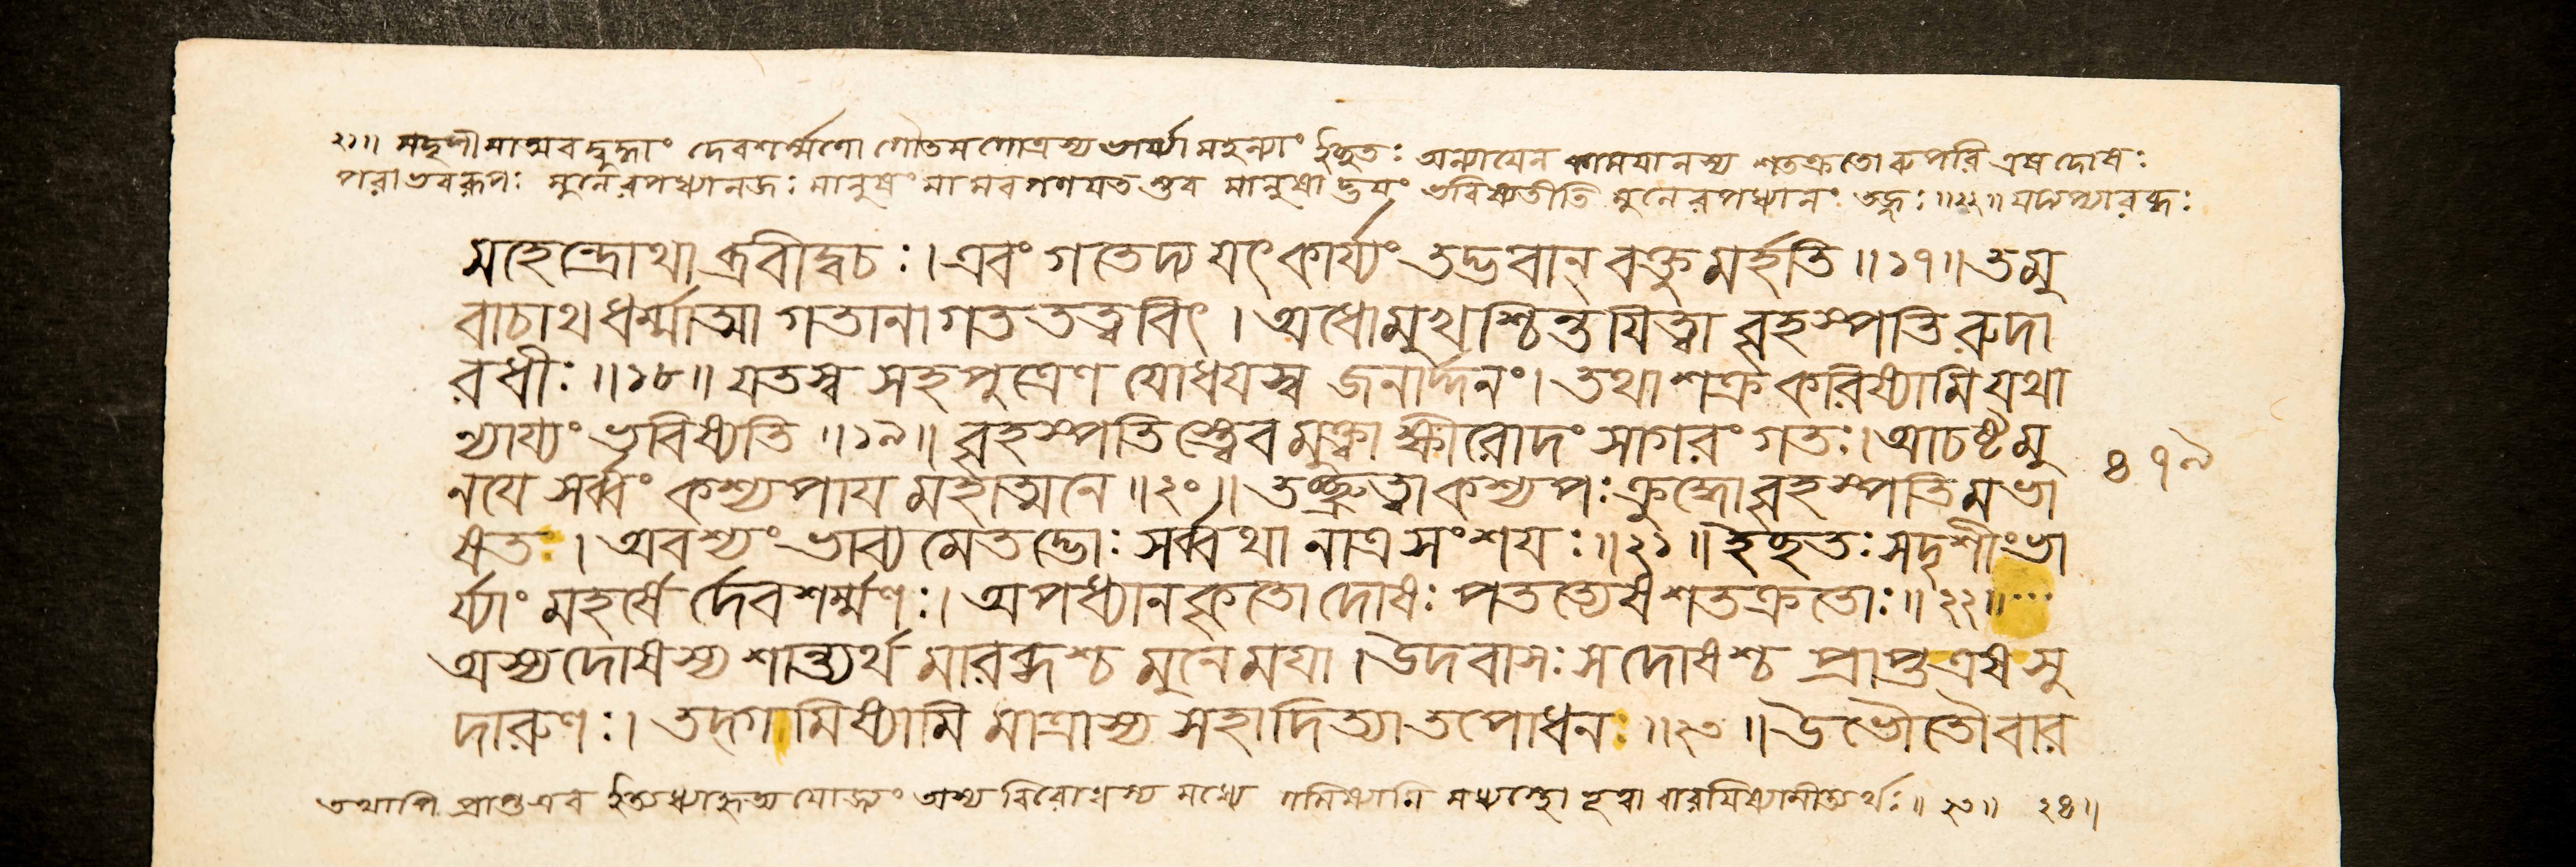 ২১॥ সদৃশীমাত্মবদ্রুহাং দেবশর্ম্মণো গৌতমগোত্রস্য ভার্য্যা মহল্যাং ইচ্ছতঃ অন্যায়েন কাময়ানস্য শতক্রতোরুপরি এষ দোষঃ
পরাভবরূপঃ মুনেরপধ্যানজঃ মানুষং মামবগণয়ত স্তব মানুষাদ্ভয়ং ভবিষ্যতীতি মুনেরপধ্যানং তদ্রূঃ॥২২॥ যদ্যপ্যারব্ধঃ
মহেন্দ্রোথাব্রবীদ্বচঃ। এবং গতেদ্য যৎকার্য্যং তদ্ভবান্ বক্তুমর্হতি॥১৭॥ তমু
বাচাথ ধর্ম্মাত্মা গতানাগততত্ববিৎ। অধোমুখশ্চিন্তয়িত্বা বৃহস্পতিরুদা
রধীঃ॥১৮॥ যতস্ব সহপুত্রেণ যোধয়স্ব জনার্দ্দনং। তথা শক্র করিষ্যামি যথা
ন্যায্যং ভবিষ্যতি॥১৯॥ বৃহস্পতিস্ত্বেবমুক্ত্বা ক্ষীরোদং সাগরং গতঃ। আচষ্ট মু
নয়ে সর্ব্বং কশ্যপায় মহাত্মনে॥২০॥ তচ্ছ্রুত্বা কশ্যপঃ ক্রুদ্ধো বৃহস্পতিমভা
ষতঃ। অবশ্যং ভাব্যমেতদ্ভোঃ সর্ব্বথা নাত্র সংশয়ঃ॥২১॥ ইচ্ছতঃ সদৃশীং ভা
র্য্যাং মহর্ষের্দেবশর্ম্মণঃ। অপধ্যানকৃতো দোষঃ পতত্যেষ শতক্রতোঃ॥২২॥
অস্য দোষস্য শান্ত্যর্থ মারব্ধশ্চ মুনে ময়া। উদবাসঃ স দোষশ্চ প্রাপ্ত এষ সু
দারুণঃ। তদ্গামিষ্যামি মাত্রাস্য সহাদিত্যা তপোধনঃ॥২৩॥ উভৌ তৌ বার
৪৭৯
তথাপি প্রাপ্ত এব ইত্যধ্যাহৃত্য যোজ্যং অস্য বিরোধস্য মধ্যে গমিষ্যামি মধ্যস্থো হূত্বা বারয়িষ্যামীত্যর্থঃ॥২৩॥ ২৪॥